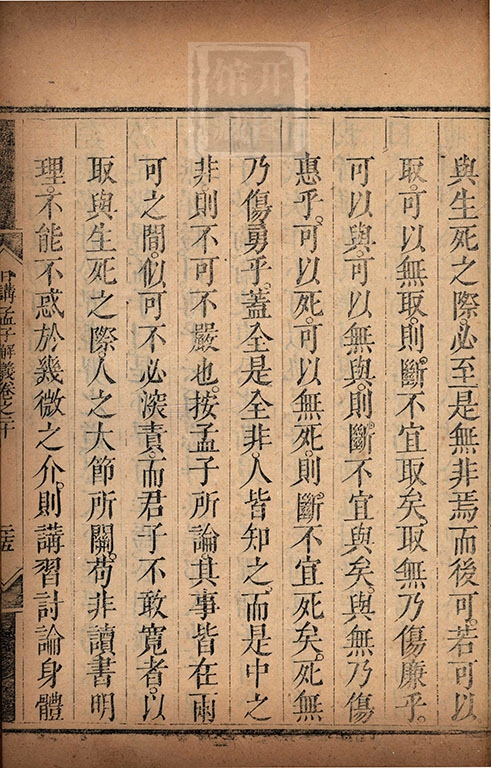 與生死之際必至是無非焉而後可若可以
取可以無取則斷不宜取矣取無乃傷廉乎
可以與可以無與則斷不宜與矣與無乃傷
惠乎可以死可以無死則斷不宜死矣死無
乃傷勇乎蓋全是全非人皆知之而是中之
非則不可不嚴也按孟子所論其事皆在兩
可之間似可不必深責而君子不敢寬者以
取與生死之際人之大節所關苟非讀書明
理不能不惑於幾微之介則講習討論身體
日講孟子解義卷之二十
二十五
開
館